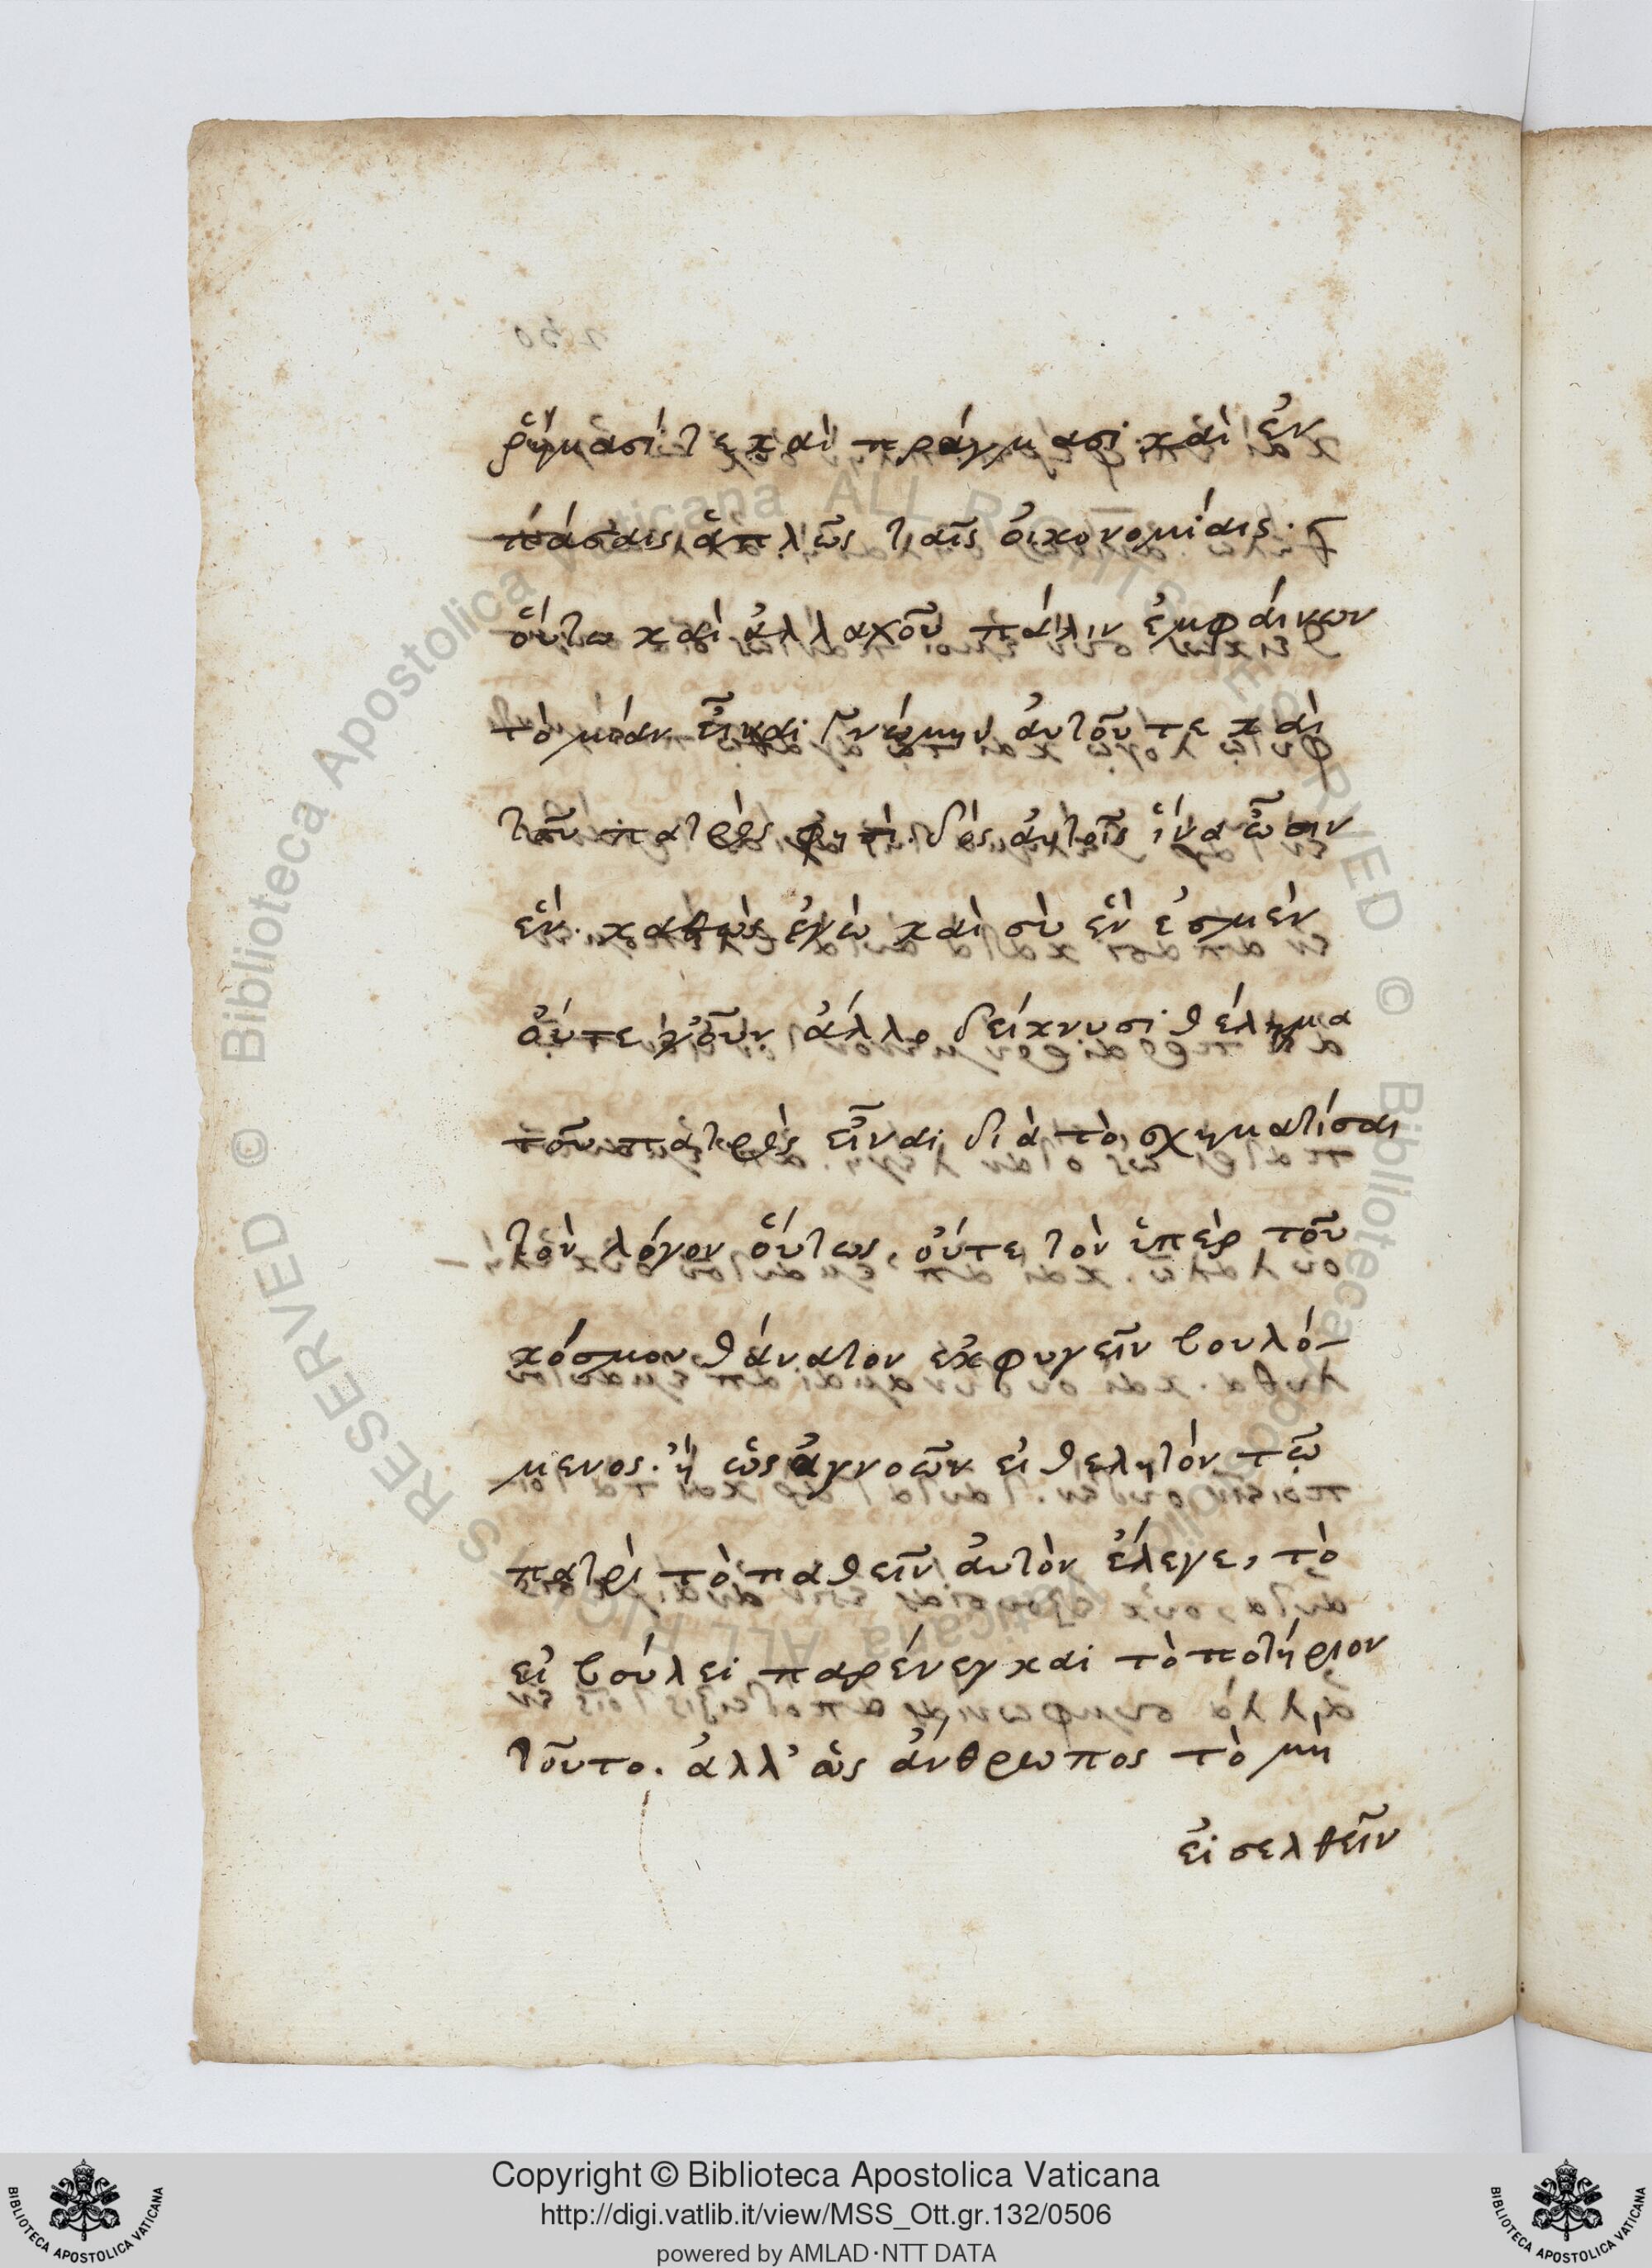 ῥήμασί τε καὶ πράγμασι· καὶ ἐν
πάσαις ἁπλῶς ταῖς οἰκονομίαις·
οὕτω καὶ ἀλλαχοῦ πάλιν ἐμφαίνων
τὸ μίαν εἶναι γνώμην αὐτοῦ τε καὶ
τοῦ πατρὸς φησὶ· δὸς αὐτοῖς ἵνα ὦσιν
ἓν· καθὼς ἐγὼ καὶ σὺ ἓν ἐσμὲν
οὔτε γοῦν ἄλλο δείκνυσι θέλημα
τοῦ πατρὸς εἶναι διὰ τὸ σχηματίσαι
τὸν λόγον οὕτως, οὔτε τὸν ὑπὲρ τοῦ
κόσμου θάνατον ἐκφυγεῖν βουλό-
μενος· ἢ ὡς ἀγνοῶν εἰ θελητὸν τῷ
πατρὶ τὸ παθεῖν αὐτὸν ἔλεγε, τὸ
εἰ βούλει παρένεγκαι τὸ ποτήριον
τοῦτο. ἀλλ' ὡς ἄνθρωπος τὸ μὴ
εἰσελθεῖν
Biblioteca Apostolica Vaticana ALL RIGHTS RESERVED ©
Biblioteca Apostolica Vaticana ALL RIGHTS RESERVED ©
Copyright © Biblioteca Apostolica Vaticana
http://digi.vatlib.it/view/MSS_Ott.gr.132/0506
powered by AMLAD·NTT DATA
BIBLIOTECA APOSTOLICA VATICANA
BIBLIOTECA APOSTOLICA VATICANA